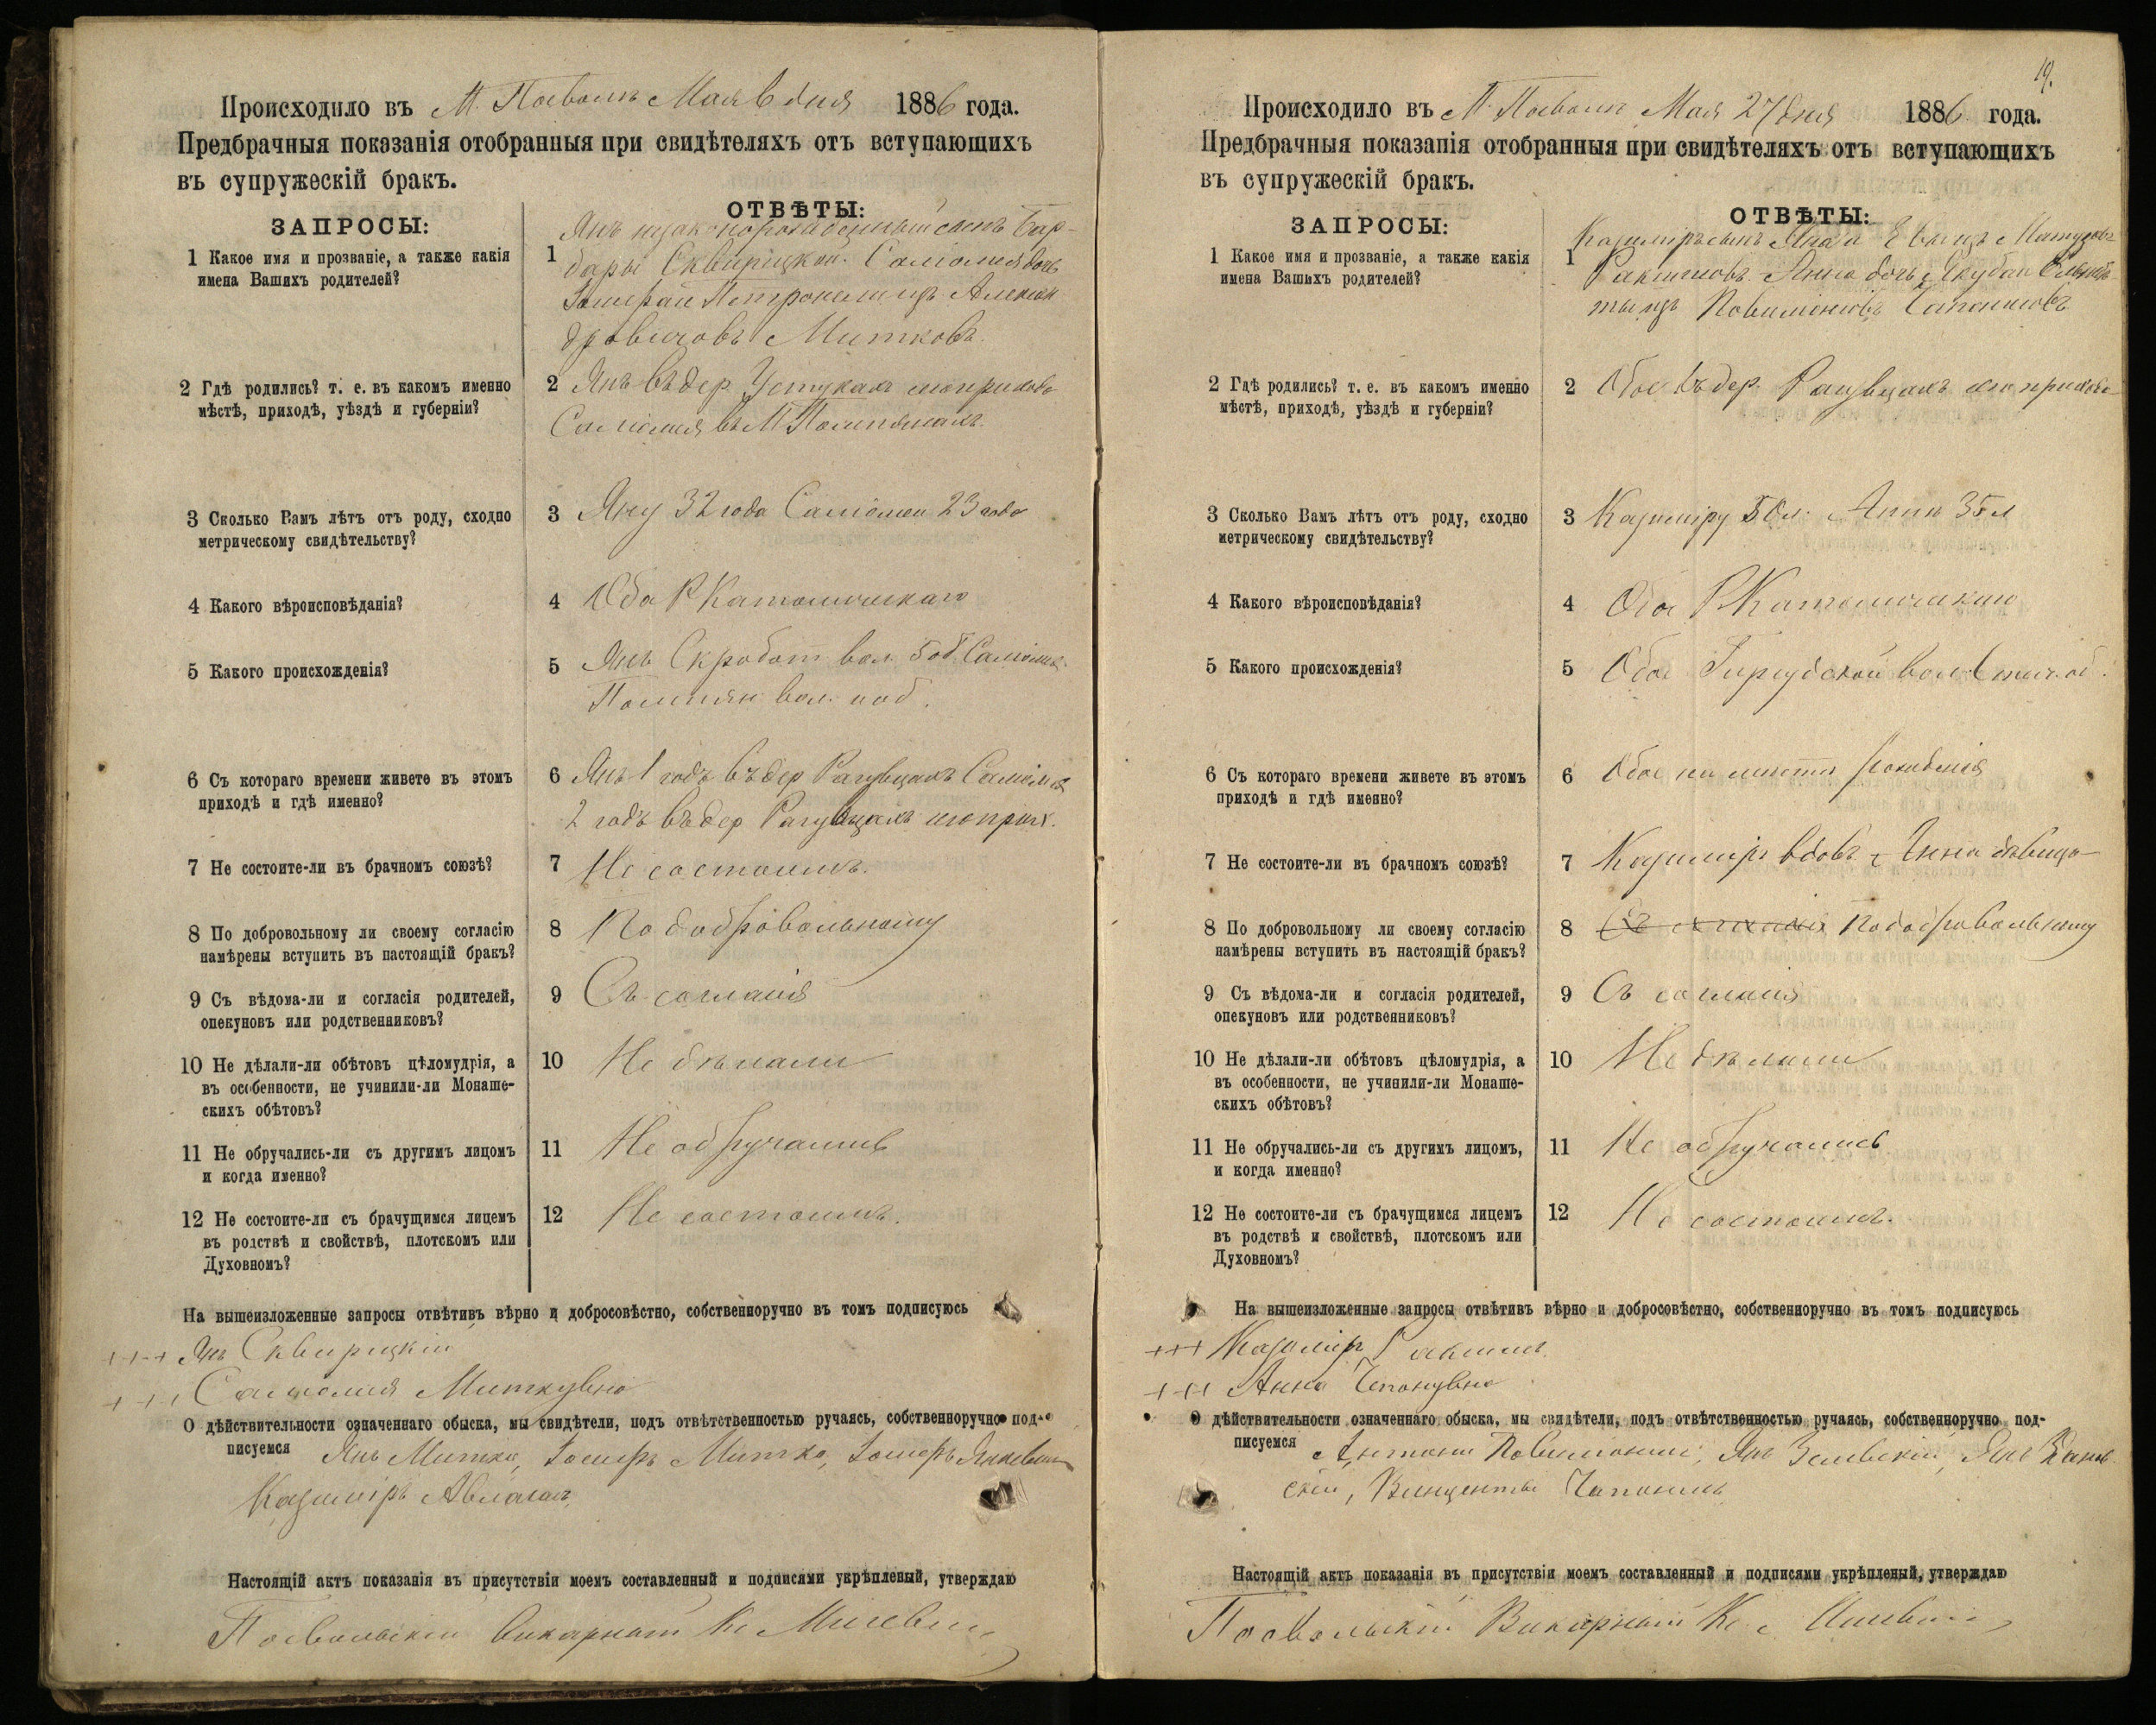 Происходило въ М. Посволь Мая 6 дня 1886 года.
Предбрачныя показанія отобранныя при свидѣтеляхъ отъ вступающихъ
въ супружескій бракъ.
ЗАПРОСЫ:
ОТВѢТЫ:
1 Какое имя и прозваніе, а также какія
имена Вашихъ родителей?
1 Янъ сынъ Бар-
бары Сквирицкой. Саломея дочь
Іосифа и Петронели изъ Алексан
дровичовъ Митковъ.
2 Гдѣ родились? т. е. въ какомъ именно
мѣстѣ, приходѣ, уѣздѣ и губерніи?
2 Янъ въ дер. сего прихода
Саломея въ М
3 Сколько Вамъ лѣтъ отъ роду, сходно
метрическому свидѣтельству?
3 Яну 32 года Саломеи 23 года
4 Какого вѣроисповѣданія?
4 Оба Р Католическаго
5 Какого происхожденія?
5 Янъ вол.
вол.
6 Съ котораго времени живете въ этомъ
приходѣ и гдѣ именно?
6 Янъ 1 годъ въ дер Рагувцахъ Саломея
2 годъ въ дер Рагувцахъ сего прих.
7 Не состоите-ли въ брачномъ союзѣ?
7 Не состоимъ.
8 По добровольному ли своему согласію
намѣрены вступить въ настоящій бракъ?
8 По добровольному
9 Съ вѣдома-ли и согласія родителей,
опекуновъ или родственниковъ?
9 Съ согласія
10 Не дѣлали-ли обѣтовъ цѣломудрія, а
въ особенности, не учинили-ли Монаше-
скихъ обѣтовъ?
10 Не дѣлали
11 Не обручались-ли съ другимъ лицомъ
и когда именно?
11 Не обручались
12 Не состоите-ли съ брачущимся лицемъ
въ родствѣ и свойствѣ, плотскомъ или
Духовномъ?
12 Не состоимъ.
На вышеизложенные запросы отвѣтивъ вѣрно и добросовѣстно, собственноручно въ томъ подписуюсь
+++ Янъ Сквирицкій
+++ Саломея Миткувна
О дѣйствительности означеннаго обыска, мы свидѣтели, подъ отвѣтственностью ручаясь, собственноручно под-
писуемся Янъ Митко, Іосифъ Митко, Іосифъ
Казиміръ
Настоящій актъ показанія въ присутствіи моемъ составленный и подписями укрѣпленый, утверждаю
Посвольскій Викарный Кс
19.
Происходило въ М. Посволь Мая 27 дня 1886 года.
Предбрачныя показанія отобранныя при свидѣтеляхъ отъ вступающихъ
въ супружескій бракъ.
ЗАПРОСЫ:
ОТВѢТЫ:
1 Какое имя и прозваніе, а также какія
имена Вашихъ родителей?
1 Казиміръ сынъ Яна и Евы изъ
Анна дочь Якуба и
изъ
2 Гдѣ родились? т. е. въ какомъ именно
мѣстѣ, приходѣ, уѣздѣ и губерніи?
2 Обое въ дер. Рагувцахъ сего прихода
3 Сколько Вамъ лѣтъ отъ роду, сходно
метрическому свидѣтельству?
3 Казиміру 50 л. Аннѣ 35 л
4 Какого вѣроисповѣданія?
4 Обое Р. Католическаго
5 Какого происхожденія?
5 Обое вол.
6 Съ котораго времени живете въ этомъ
приходѣ и гдѣ именно?
6 Обое на мѣстѣ рожденія
7 Не состоите-ли въ брачномъ союзѣ?
7 Казиміръ вдовъ Анна дѣвица
8 По добровольному ли своему согласію
намѣрены вступить въ настоящій бракъ?
8 По добровольному
9 Съ вѣдома-ли и согласія родителей,
опекуновъ или родственниковъ?
9 Съ согласія
10 Не дѣлали-ли обѣтовъ цѣломудрія, а
въ особенности, не учинили-ли Монаше-
скихъ обѣтовъ?
10 Не дѣлали
11 Не обручались-ли съ другимъ лицомъ,
и когда именно?
11 Не обручались
12 Не состоите-ли съ брачущимся лицемъ
въ родствѣ и свойствѣ, плотскомъ или
Духовномъ?
12 Не состоимъ.
На вышеизложенные запросы отвѣтивъ вѣрно и добросовѣстно, собственноручно въ томъ подписуюсь
+++ Казиміръ
+++ Анна
О дѣйствительности означеннаго обыска, мы свидѣтели, подъ отвѣтственностью ручаясь, собственноручно под-
писуемся Антони Янъ Янъ
скій, Винценты
Настоящій актъ показанія въ присутствія моемъ составленный и подписями укрѣпленый, утверждаю
Посвольскій Викарный Кс